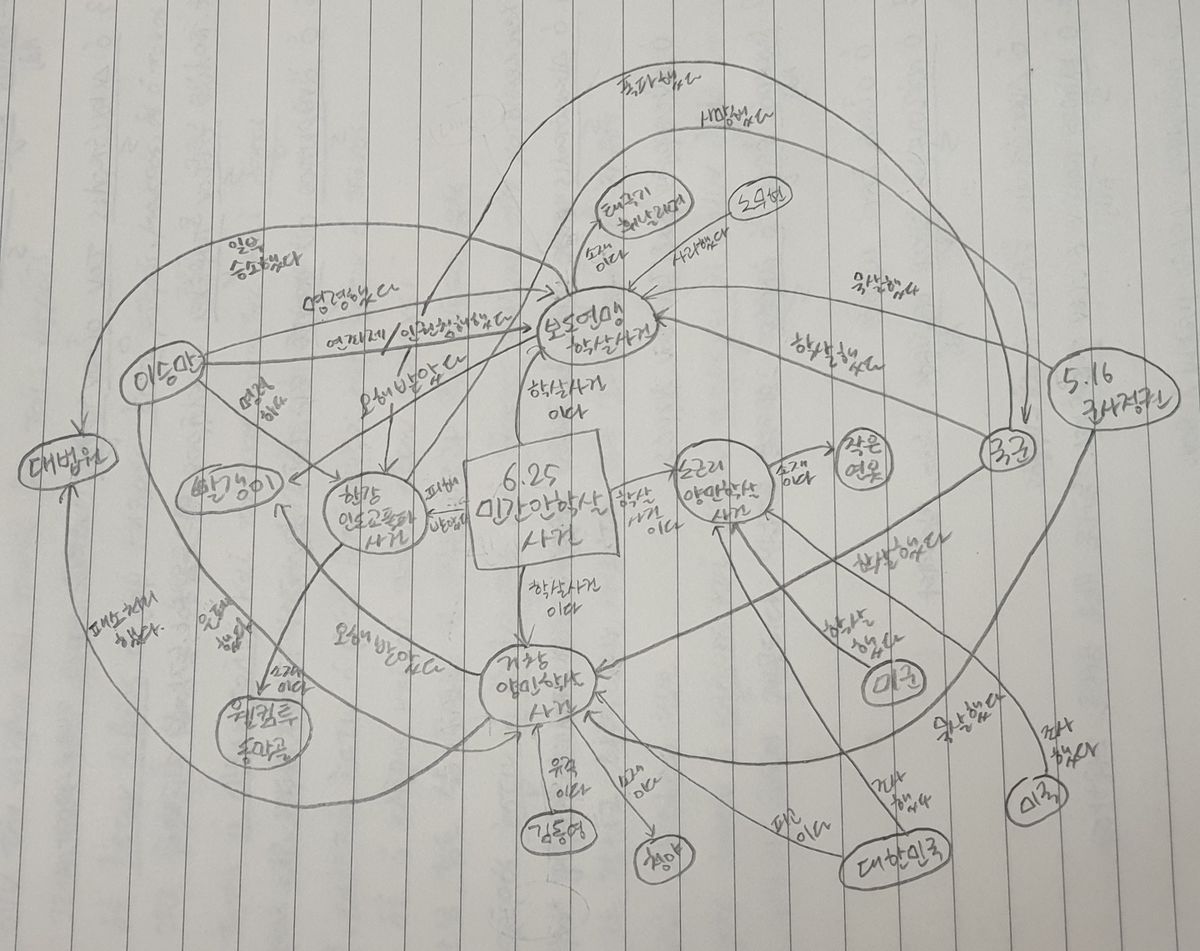 폭파했다
사망했다
태극기
휘날리며
노무현
일부
승소했다
소재
이다
사과했다
명령했다
묵살했다
연좌제/인권침해했다
보도연맹
학살사건
이승만
오해받았다
학살했다
5.16
군사정권
명령
하다
학살사건
이다
대법원
빨갱이
한강
인도교폭파
사건
피해
6.25
민간안학살
사건
학살
사건
이다
노근리
양민학살
사건
소재
이다
작은
연못
국군
학살사건
이다
학살했다
패소처리
했다.
은폐
했다
오해받았다
거창
양민학살
사건
학살
했다
미군
소재
이다
웰컴투
동막골
묵살했다
조사
했다
유족
이다
소재
이다
조사
했다
미국
김동영
청야
피고
이다
대한민국